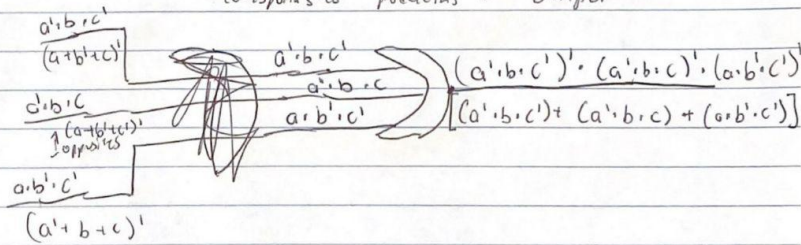 a'·b·c'
(a+b'+c)'
a'·b·c
(a+b'+c')'
opposites
a·b'·c'
(a'+b+c)'
a'·b·c'
a'·b·c
a·b'·c'
(a'·b·c')'·(a'·b·c)'·(a·b'·c')'
[(a'·b·c')+(a'·b·c)+(a·b'·c')]